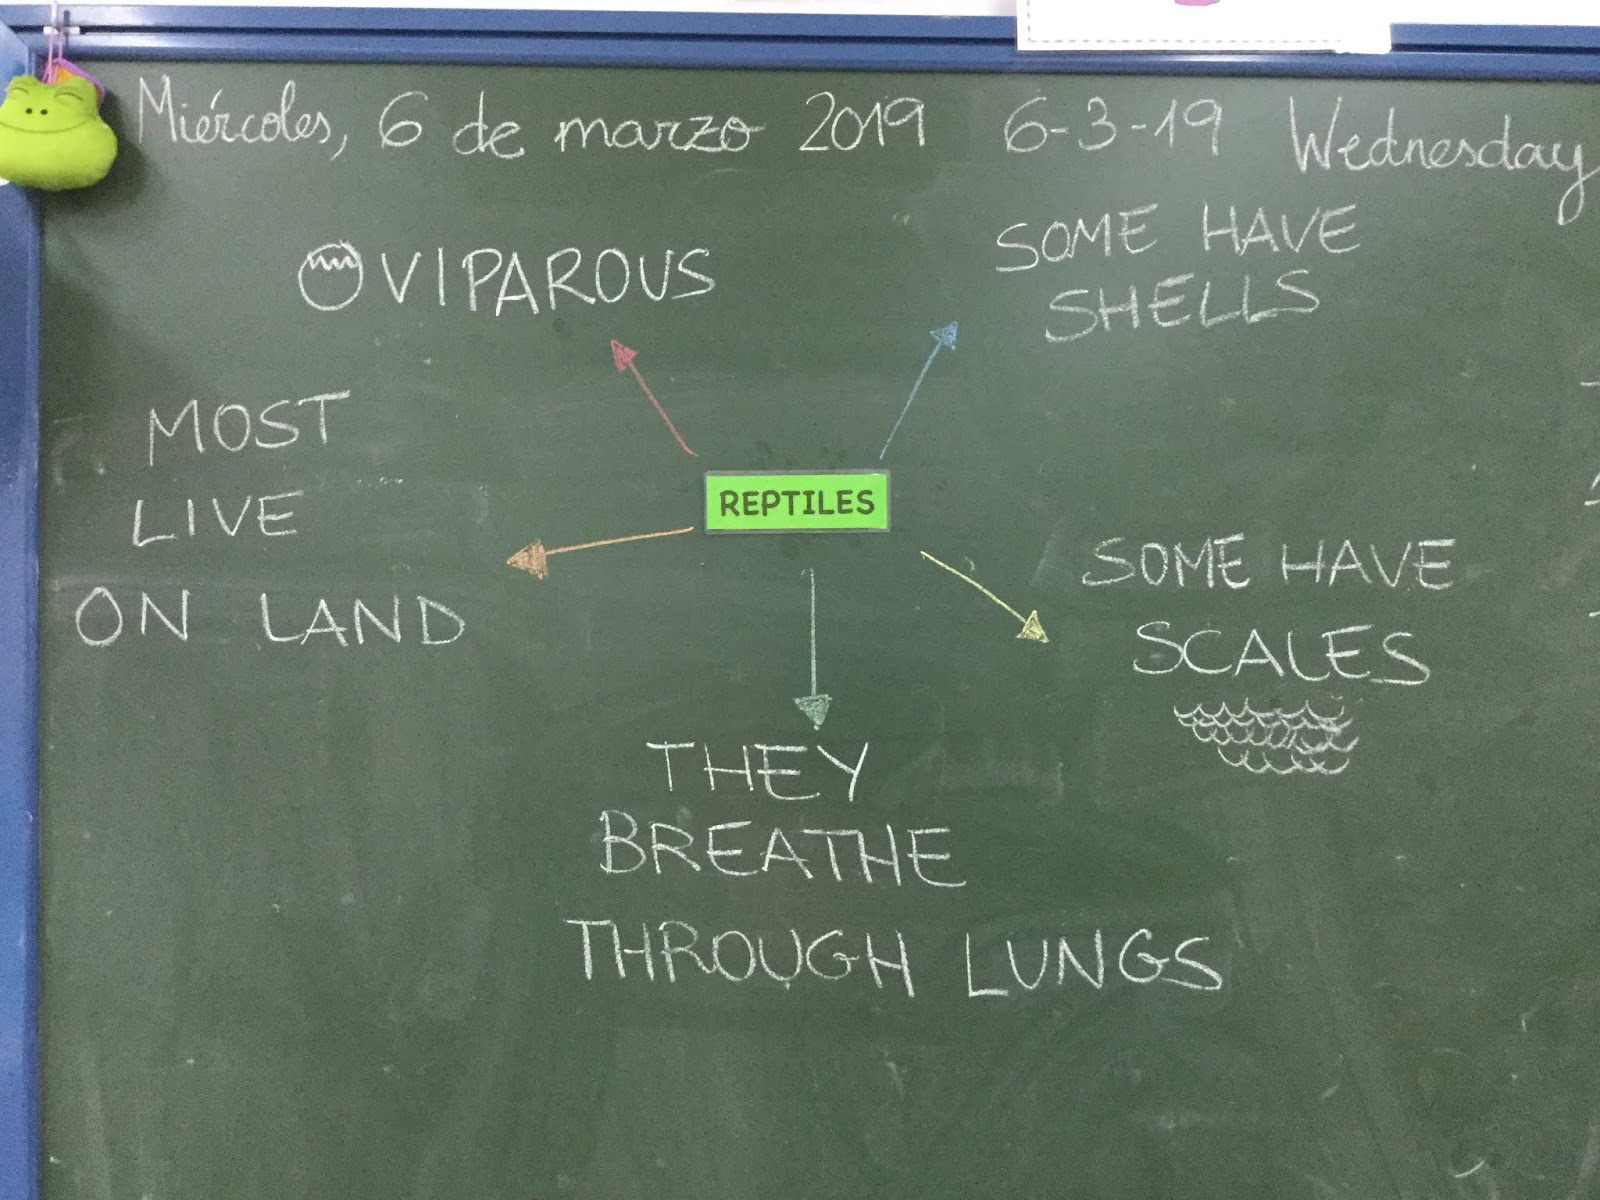 Miércoles, 6 de marzo 2019 6-3-19 Wednesday
OVIPAROUS
SOME HAVE
SHELLS
MOST
LIVE
ON LAND
REPTILES
SOME HAVE
SCALES
THEY
BREATHE
THROUGH LUNGS